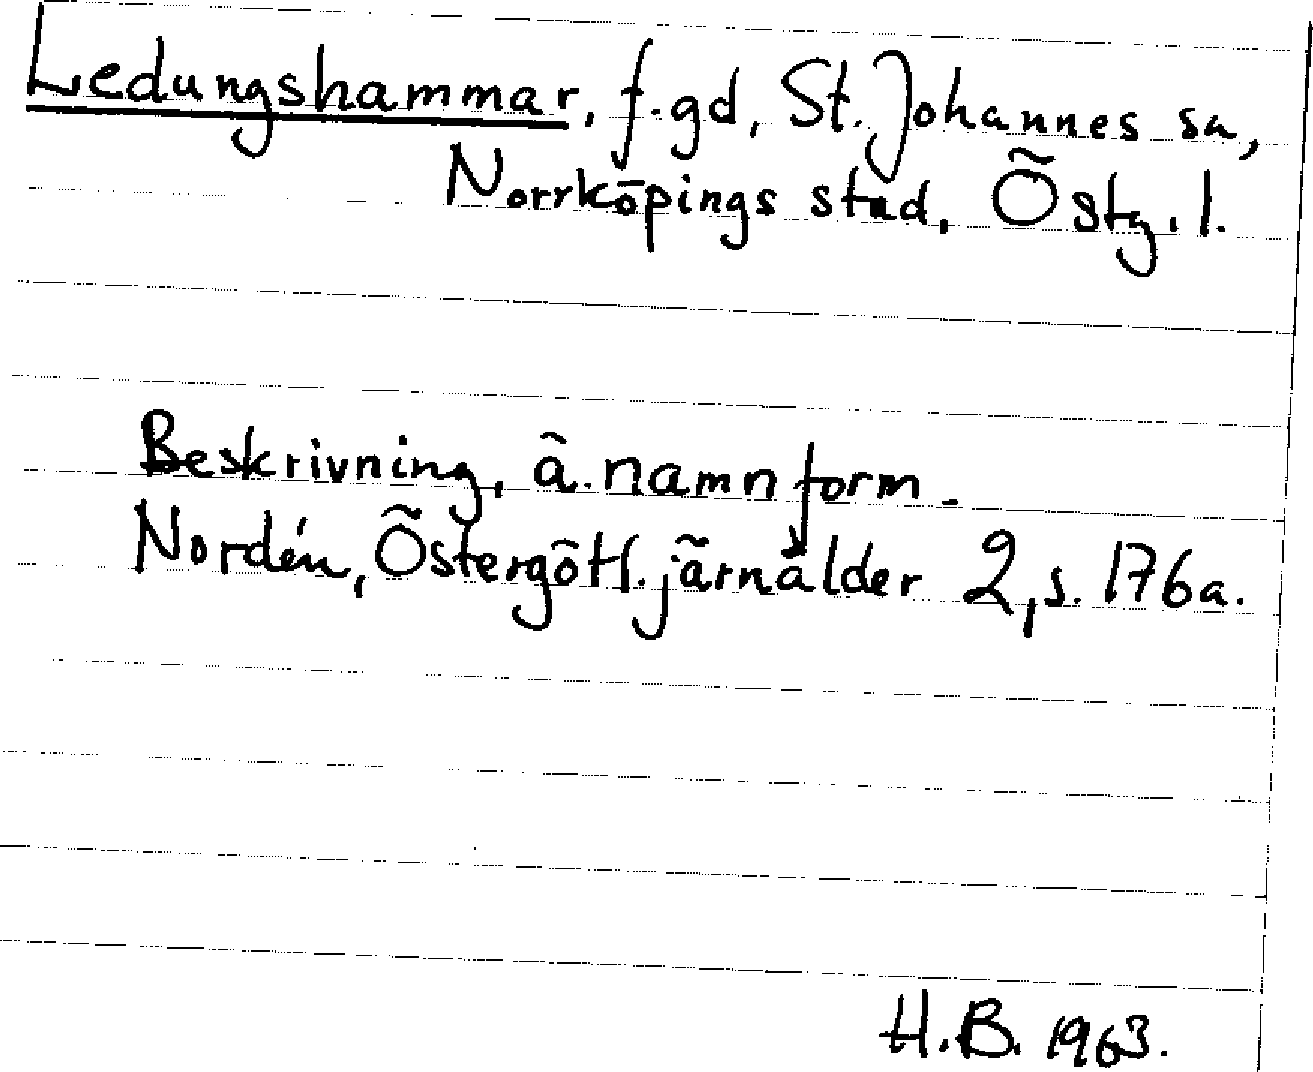 Ledungshammar, f.gd, St. Johannes sn,
Norrköpings stad, Östg. l.
Beskrivning, ä. namnform.
Nordén, Östergötl. järnålder 2, s. 176a.
H.B. 1963.